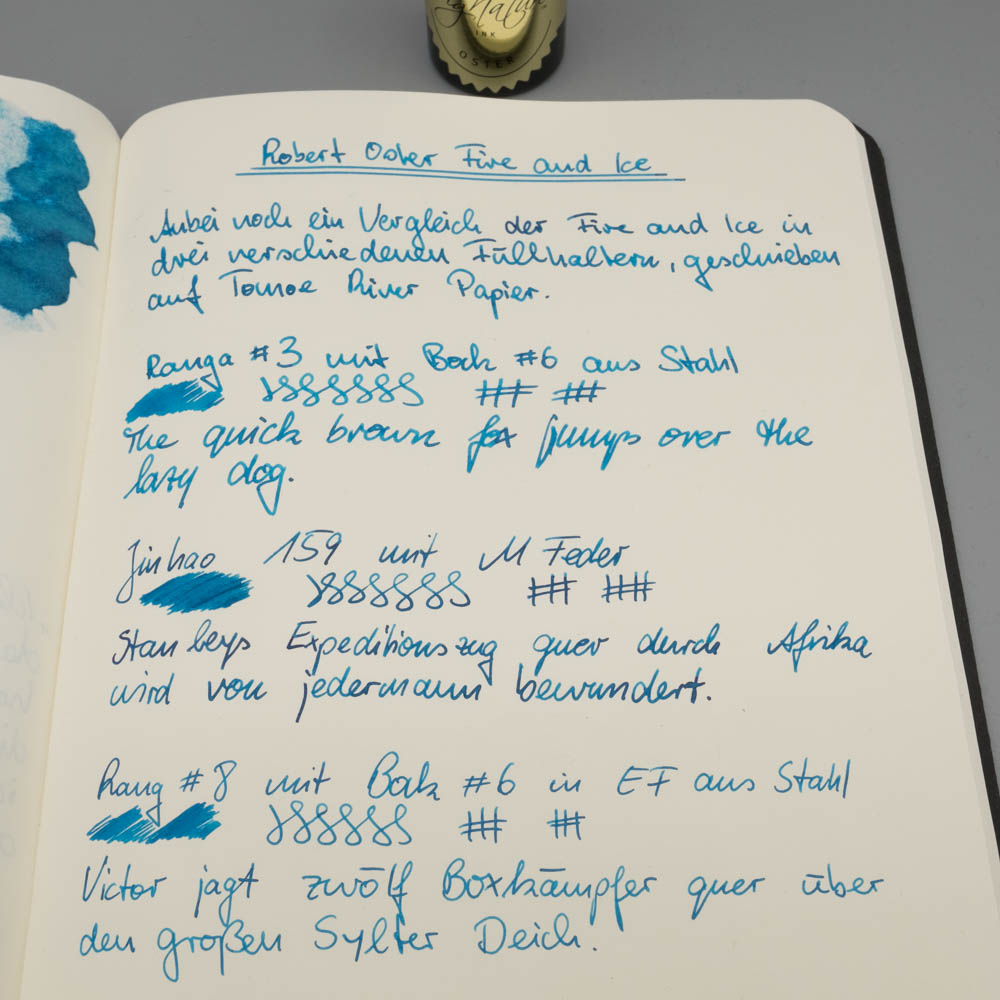 Signature
INK
OSTER
Robert Oster Fire and Ice
Anbei noch ein Vergleich der Fire and Ice in
drei verschiedenen Füllhaltern, geschrieben
auf Tomoe River Papier.
Ranga #3 mit Bock #6 aus Stahl
The quick brown fox jumps over the
lazy dog.
Jinhao 159 mit M Feder
Stanleys Expeditionszug quer durch Afrika
wird von jedermann bewundert.
Rang #8 mit Bock #6 in EF aus Stahl
Victor jagt zwölf Boxkämpfer quer über
den großen Sylter Deich.